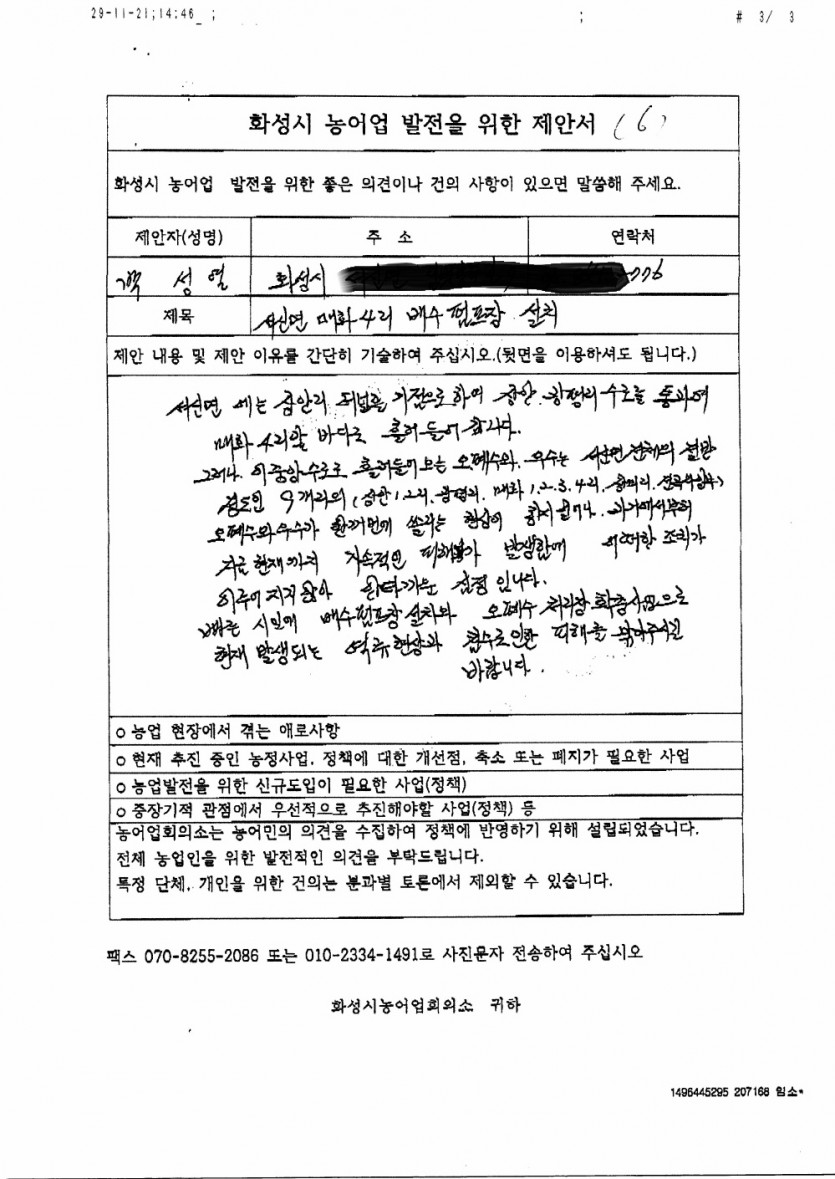 29-11-21;14:46_ ; ; # 3/ 3
화성시 농어업 발전을 위한 제안서 (6)
화성시 농어업 발전을 위한 좋은 의견이나 건의 사항이 있으면 말씀해 주세요.
제안자(성명) 주 소 연락처
성열 화성시
제목 서신면 매화4리 배수펌프장 설치
제안 내용 및 제안 이유를 간단히 기술하여 주십시오.(뒷면을 이용하셔도 됩니다.)
서신면 에는 장안리 기점으로 하여 장안. 수로를 통하여
매화4리앞 바다로 흘러들어 갑니다.
그러나. 이중앙수로로 흘러들어오는 오폐수와. 우수는 서신면전체의 절반
정도인 9개리의 (장안1.2리. 매화1.2.3.4리.
오폐수와우수가 한꺼번에 쏠리는 현상이 과거에서부터
지금현재까지 지속적인 피해가 발생함에 어떠한 조치가
이루어지지 않아 안타까운 심정 입니다.
빠른 시일에 배수펌프장설치와 오폐수 처리장 확충사업으로
현재 발생되는 역류현상과 침수로인한 피해를 막아주시길
바랍니다.
ㅇ농업 현장에서 겪는 애로사항
ㅇ현재 추진 중인 농정사업, 정책에 대한 개선점, 축소 또는 폐지가 필요한 사업
ㅇ농업발전을 위한 신규도입이 필요한 사업(정책)
ㅇ중장기적 관점에서 우선적으로 추진해야할 사업(정책) 등
농어업회의소는 농어민의 의견을 수집하여 정책에 반영하기 위해 설립되었습니다.
전체 농업인을 위한 발전적인 의견을 부탁드립니다.
특정 단체, 개인을 위한 건의는 분과별 토론에서 제외할 수 있습니다.
팩스 070-8255-2086 또는 010-2334-1491로 사진문자 전송하여 주십시오
화성시농어업회의소 귀하
1496445295 207168 임소*